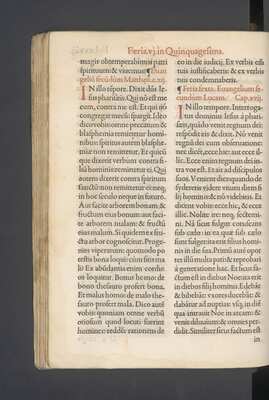 Feria.vj.in Quinquagesima.
magis obtemperabimus patri
spirituum & viuemus? ¶ Euan
geliũ secũdum Matthęũ.c.xij.
IN illo tẽpore. Dixit dñs Ie
sus pharisæis. Qui nõ est me
cum, contra me est. Et qui nõ
congregat mecũ: spargit. Ideo
dico vobis omne peccatum &
blasphemia remittetur homi
nibus: spiritus autem blasphe
miæ non remittetur. Et quicũ
que dixerit verbum contra fi
liũ hominis remittetur ei. Qui
autem dixerit contra spiritum
sanctũ non remittetur ei: neque
in hoc seculo neque in futuro.
Aut facite arborem bonam: &
fructum eius bonum: aut faci
te arborem malam: & fructũ
eius malum. Si quidem ex fru
ctu arbor cognoscitur. Proge
nies viperarum: quomodo po
testis bona loqui: cũ sitis ma
li? Ex abũdantia enim cordis
os loquitur. Bonus homo de
bono thesauro profert bona.
Et malus homo: de malo the
sauro profert mala. Dico autẽ
vobis: quoniam omne verbũ
otiosum quod locuti fuerint
homines: reddẽt rationem de
eo in die iudicij. Ex verbis eñi
tuis iustificaberis: & ex verbis
tuis condemnaberis.
¶ Feria sexta. Euangelium se
cundum Lucam. Cap.xvij.
IN illo tempore. Interroga
tus dominus Iesus a phari
sæis, quãdo venit regnũ dei:
respõdit eis & dixit. Nõ venit
regnũ dei cum obseruatione:
nec dicẽt, ecce hic: aut ecce il
lic. Ecce enim regnum dei in
tra vos est. Et ait ad discipulos
suos. Venient dies quando de
syderetis videre vnum diem fi
lij hominis: & nõ videbitis. Et
dicent vobis: ecce hic, & ecce
illic. Nolite ire: neque sectemi
ni. Nã sicut fulgur coruscans
sub cælo: in ea quæ sub cælo
sunt fulget: ita erit filius homi
nis in die sua. Primũ autẽ opor
tet illũ multa pati: & reprobari
à generatione hac. Et sicut fa
ctum est in diebus Noe: ita erit
in diebus filij hominis. Edebãt
& bibebãt: vxores ducebãt, &
dabãtur ad nuptias: vsque in diẽ
qua intrauit Noe in arcam: &
venit diluuium, & omnes per
didit. Similiter sicut factum est
in